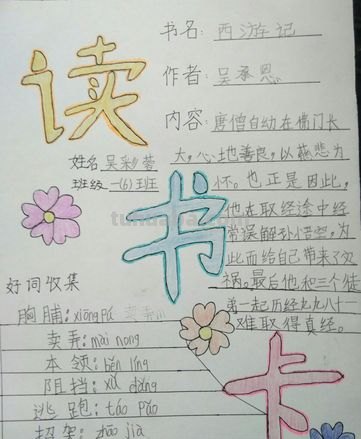 读
书
卡
书名: 西游记
作者: 吴承恩
内容: 唐僧自幼在佛门长
大,心地善良,以慈悲为
怀。也正是因此,
他在取经途中经
常误解孙悟空,为
此而给自己带来了灾
祸。最后他和三个徒
弟一起历经九九八十一
难取得真经。
姓名 吴彩蓉
班级 一(6)班
好词收集
胸脯: xiōng pú
卖弄: mài nong
本领: běn lǐng
阻挡: xǔ dǎng
逃跑: táo pǎo
招架: zhāo jià